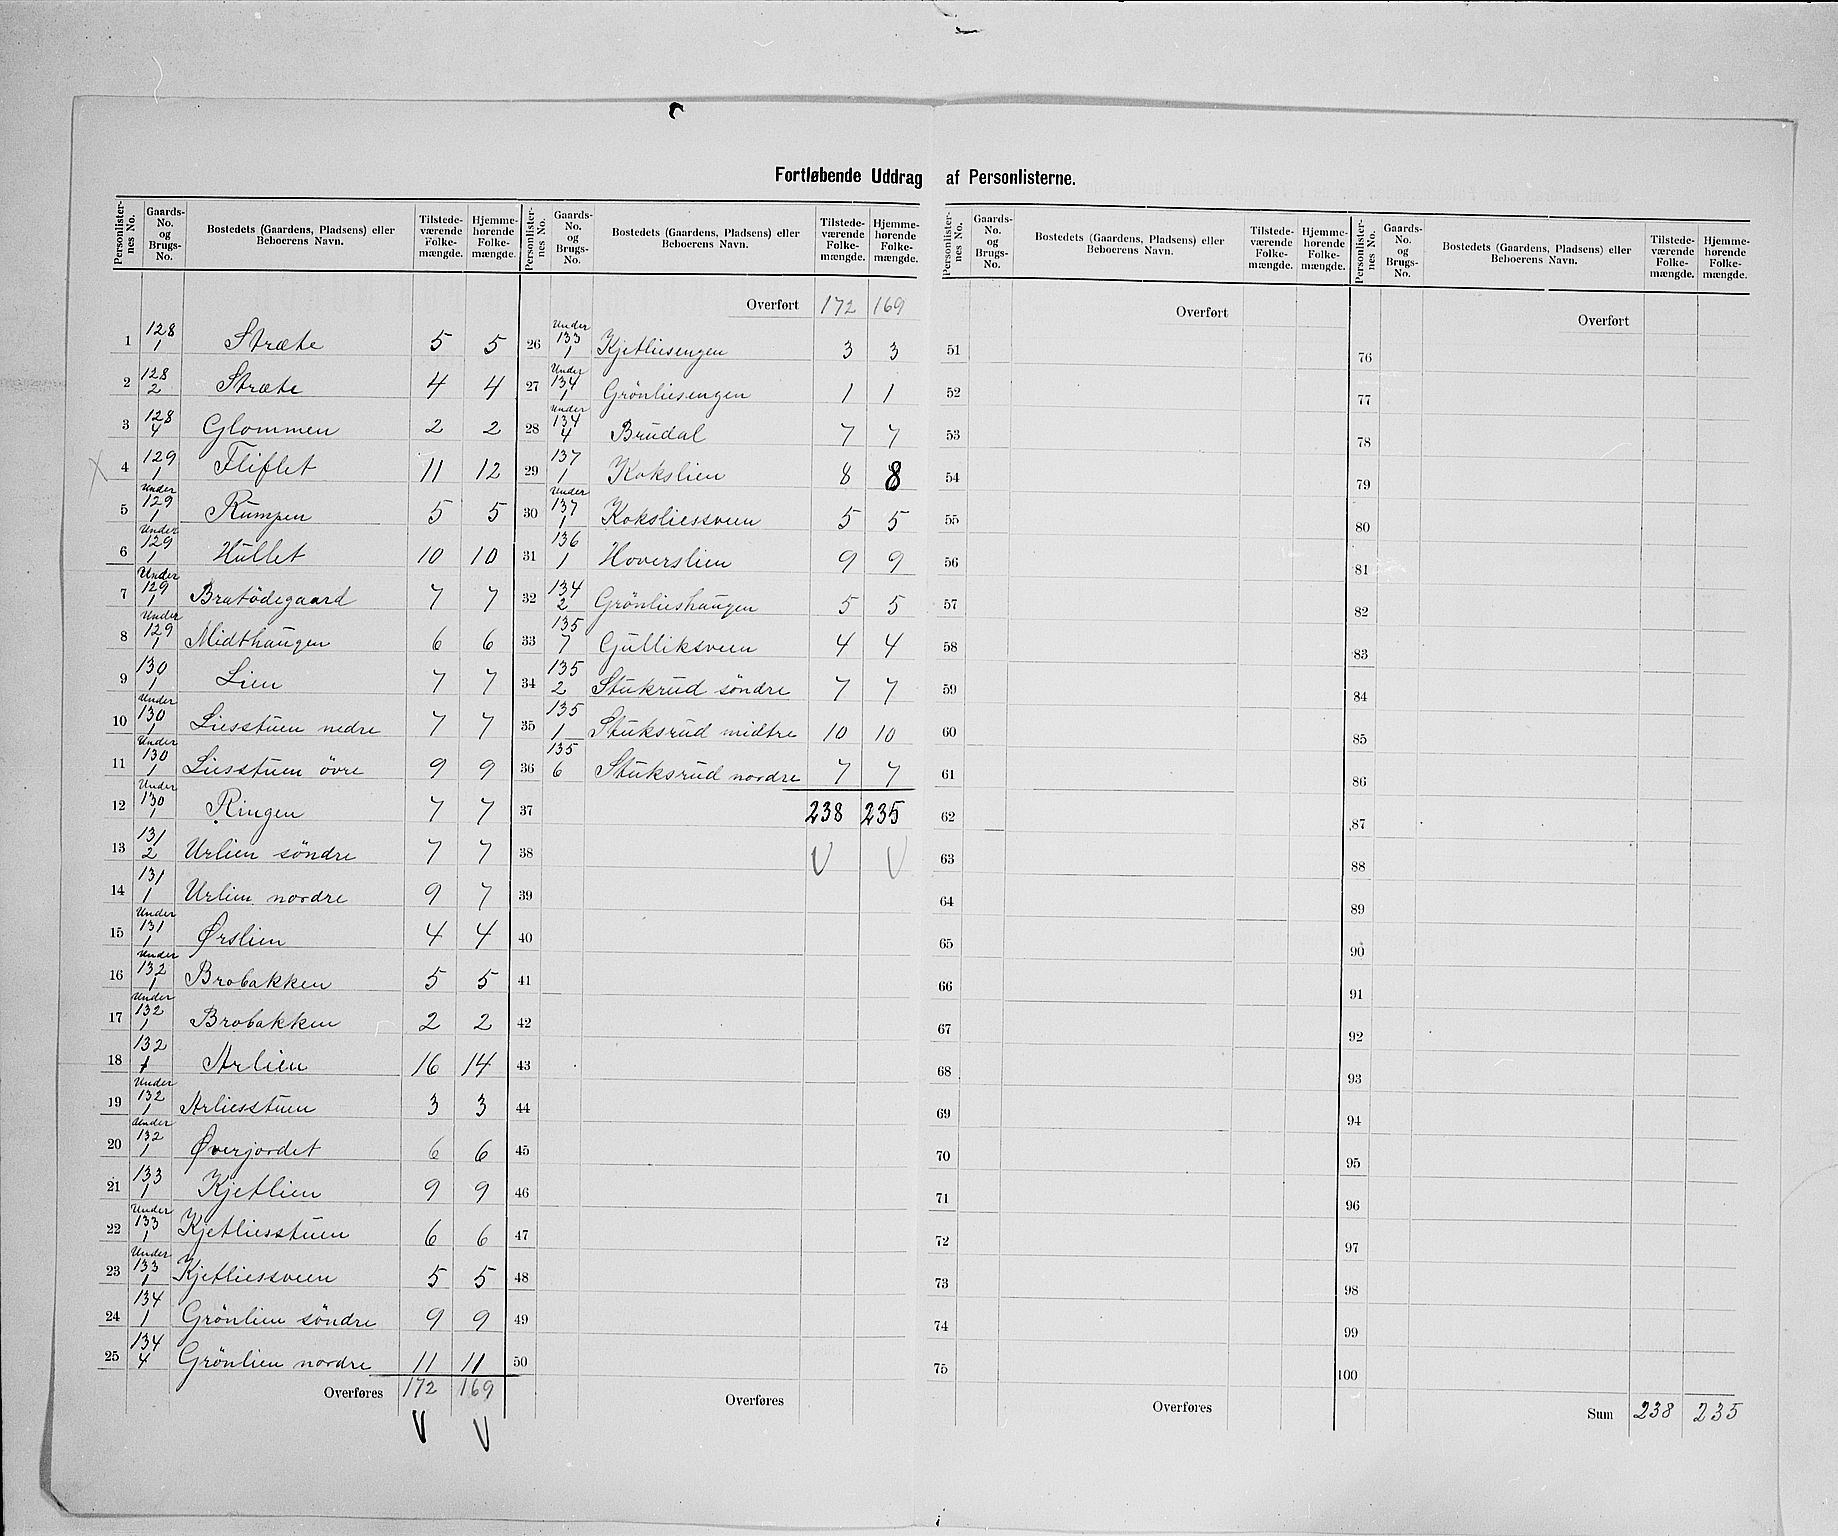 Fortløbende Uddrag af Personlisterne.
Personlister-nes No. | Gaards-No. og Brugs-No. | Bostedets (Gaardens, Pladsens) eller Beboerens Navn. | Tilstede-værende Folke-mængde. | Hjemme-hørende Folke-mængde.
1 | 128 1 | Stræte | 5 | 5
2 | 128 2 | Stræte | 4 | 4
3 | 128 4 | Glommen | 2 | 2
X 4 | 129 1 | Fliflet | 11 | 12
5 | Under 129 1 | Rumpen | 5 | 5
6 | Under 129 1 | Hullet | 10 | 10
7 | Under 129 1 | Bratödegaard | 7 | 7
8 | Under 129 1 | Midthaugen | 6 | 6
9 | 130 1 | Lien | 7 | 7
10 | Under 130 1 | Liesstuen nedre | 7 | 7
11 | Under 130 1 | Liesstuen övre | 9 | 9
12 | Under 130 1 | Ringen | 7 | 7
13 | 131 2 | Urlien söndre | 7 | 7
14 | 131 1 | Urlien nordre | 9 | 7
15 | Under 131 1 | Ørslien | 4 | 4
16 | Under 132 1 | Brobakken | 5 | 5
17 | Under 132 1 | Brobakken | 2 | 2
18 | 132 1 | Arlien | 16 | 14
19 | Under 132 1 | Arliesstuen | 3 | 3
20 | Under 132 1 | Øverjordet | 6 | 6
21 | 133 1 | Kjetlien | 9 | 9
22 | Under 133 1 | Kjetliesstuen | 6 | 6
23 | Under 133 1 | Kjetliessveen | 5 | 5
24 | 134 1 | Grönlien söndre | 9 | 9
25 | 134 4 | Grönlien nordre | 11 | 11
Overføres | 172 | 169
V V
Personlister-nes No. | Gaards-No. og Brugs-No. | Bostedets (Gaardens, Pladsens) eller Beboerens Navn. | Tilstede-værende Folke-mængde. | Hjemme-hørende Folke-mængde.
Overført | 172 | 169
26 | Under 133 1 | Kjetliesengen | 3 | 3
27 | Under 134 1 | Grönliesengen | 1 | 1
28 | Under 134 4 | Brudal | 7 | 7
29 | 137 1 | Kokslien | 8 | 8
30 | Under 137 1 | Koksliessveen | 5 | 5
31 | 136 1 | Hoverslien | 9 | 9
32 | 134 2 | Grönlieshaugen | 5 | 5
33 | 135 7 | Gulliksveen | 4 | 4
34 | 135 2 | Stukrud söndre | 7 | 7
35 | 135 1 | Stuksrud midtre | 10 | 10
36 | 135 6 | Stuksrud nordre | 7 | 7
37 | 238 | 235
38 | V | V
39
40
41
42
43
44
45
46
47
48
49
50
Overføres
Personlister-nes No. | Gaards-No. og Brugs-No. | Bostedets (Gaardens, Pladsens) eller Beboerens Navn. | Tilstede-værende Folke-mængde. | Hjemme-hørende Folke-mængde.
Overført
51
52
53
54
55
56
57
58
59
60
61
62
63
64
65
66
67
68
69
70
71
72
73
74
75
Overføres
Personlister-nes No. | Gaards-No. og Brugs-No. | Bostedets (Gaardens, Pladsens) eller Beboerens Navn. | Tilstede-værende Folke-mængde. | Hjemme-hørende Folke-mængde.
Overført
76
77
78
79
80
81
82
83
84
85
86
87
88
89
90
91
92
93
94
95
96
97
98
99
100
Sum | 238 | 235